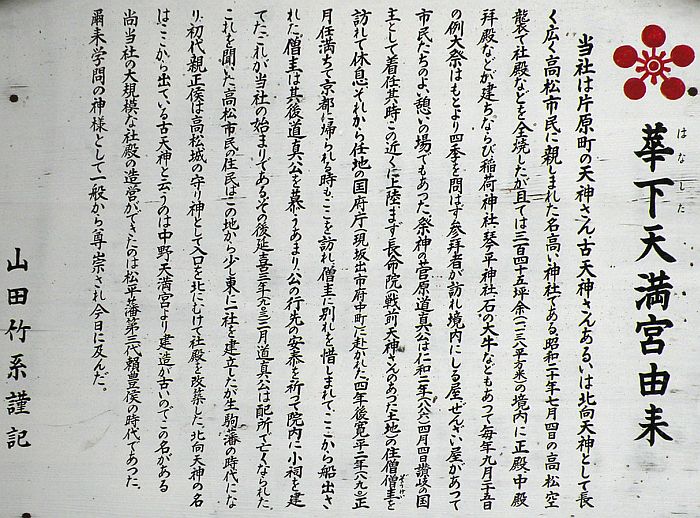 華下天満宮由来
はなした
当社は片原町の天神さん、古天神さんあるいは北向天神として長
く広く高松市民に親しまれた名高い神社である。昭和二十年七月四日の高松空
襲で社殿などを全焼したが且ては三百四十五坪余(一一三八平方米)の境内に正殿中殿
拝殿などが建ちならび稲荷神社、琴平神社、石の大牛などもあって毎年九月二十五日
の例大祭はもとより四季を問はず参拝者が訪れ境内にしる屋、ぜんざい屋があって
市民たちのよい憩いの場でもあった。祭神の菅原道真公は仁和二年(八八六)四月四日讃岐の国
主として着任、其時この近くに上陸まず長命院(戦前天神さんのあった土地)の住僧僧圭を
訪れて休息それから任地の国府庁(現坂出市府中町)に赴かれた。四年後寛平二年(八九〇)正
月任満ちて京都に帰られる時もここを訪れ僧圭に別れを惜しまれて、ここから船出さ
れた。僧圭は其後道真公を慕うあまり、公の行先の安泰を祈って院内に小祠を建
てた。これが当社の始まりである。その後延喜三年(九〇三)三月道真公は配所で亡くなられた。
これを聞いた高松市民の住民はこの地から少し東に一社を建立したが生駒藩の時代にな
り、初代親正侯は高松城の守り神として入口を北にむけて社殿を改築した。北向天神の名
は、ここから出ている。古天神と云うのは中野天満宮より建造が古いのでこの名がある
尚当社の大規模な社殿の造営ができたのは松平藩第三代頼豊侯の時代であった。
爾来学問の神様として一般から尊崇され今日に及んだ。
山田竹系謹記